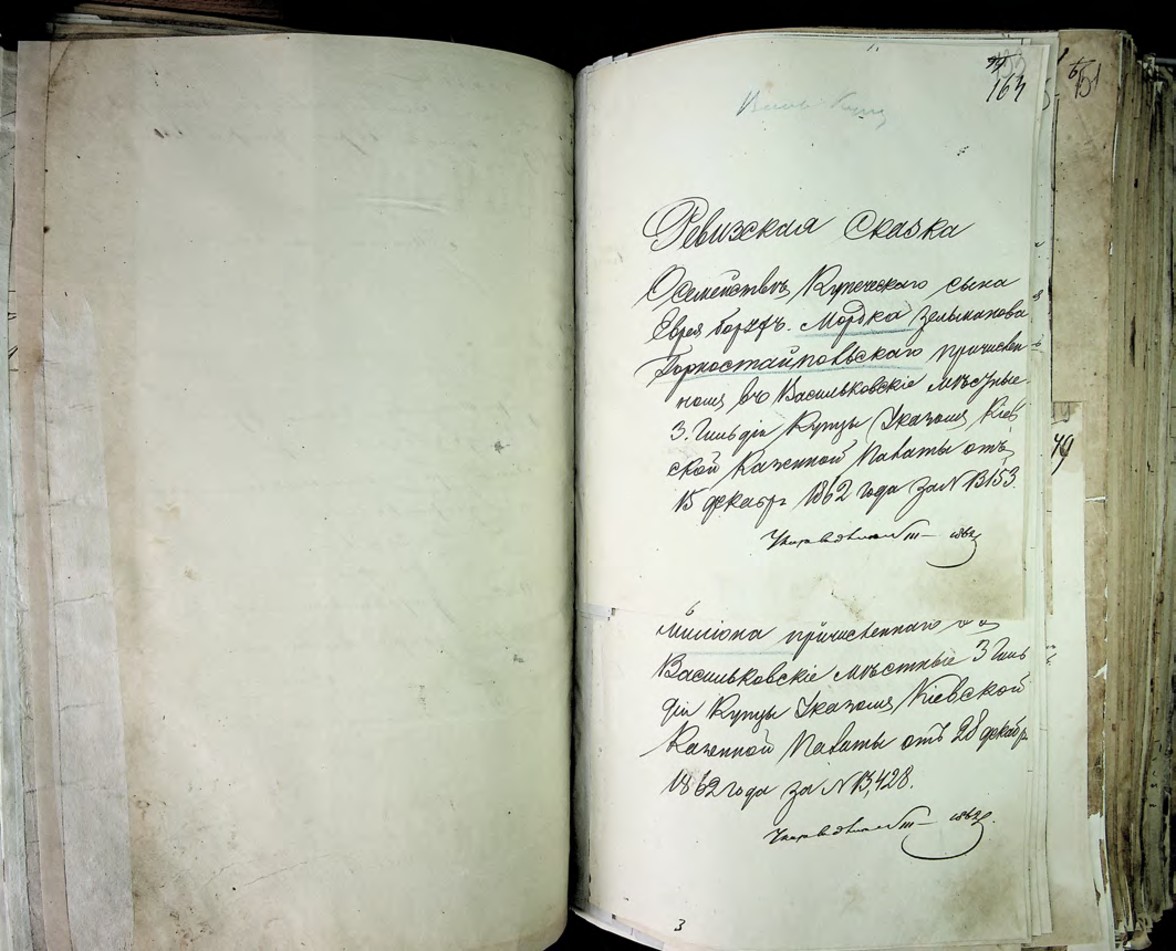 164
151
Ревизская Сказка
О семействѣ Купеческаго сына
Еврея Мордка Зельманова
Горностайпольскаго причислен-
ного въ Васильковскіе мѣстные
3. Гильдіи Купцы Указомъ Кіев
ской Казенной Палаты отъ
15 декабр 1862 года за N 13153.
1862
причисленнаго
Васильковскіе мѣстные 3 Гиль
діи Купцы Указомъ Кіевской
Казенной Палаты отъ 28 декабр
1862 года за N 13,428.
1862.
3